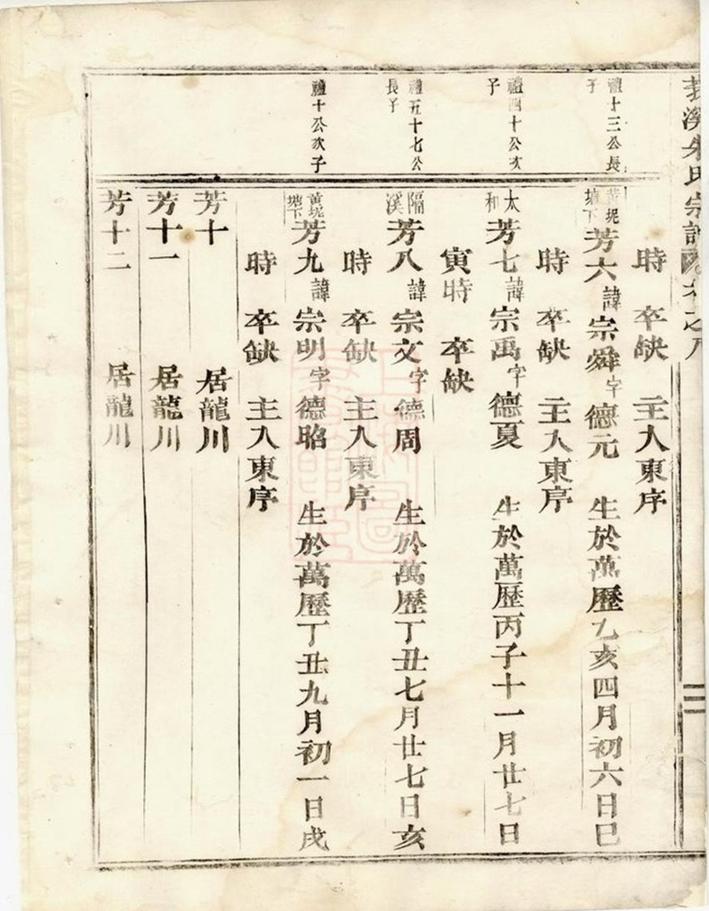 溪朱氏宗譜 卷之八
時 卒缺 主入東序
禮十三公長子
黃坭塘下 芳六 諱宗舜字德元 生於萬歷乙亥四月初六日巳
時 卒缺 主入東序
禮四十公次子
太和 芳七 諱宗禹字德夏 生於萬歷丙子十一月廿七日
寅時 卒缺
禮五十七公長子
隔溪 芳八 諱宗文字德周 生於萬歷丁丑七月廿七日亥
時 卒缺 主入東序
禮十公次子
黃坭塘下 芳九 諱宗明字德昭 生於萬歷丁丑九月初一日戌
時 卒缺 主入東序
芳十 居龍川
芳十一 居龍川
芳十二 居龍川